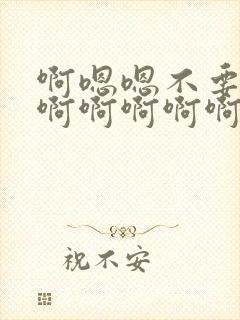 啊嗯嗯不要
啊啊啊啊啊
祝不安